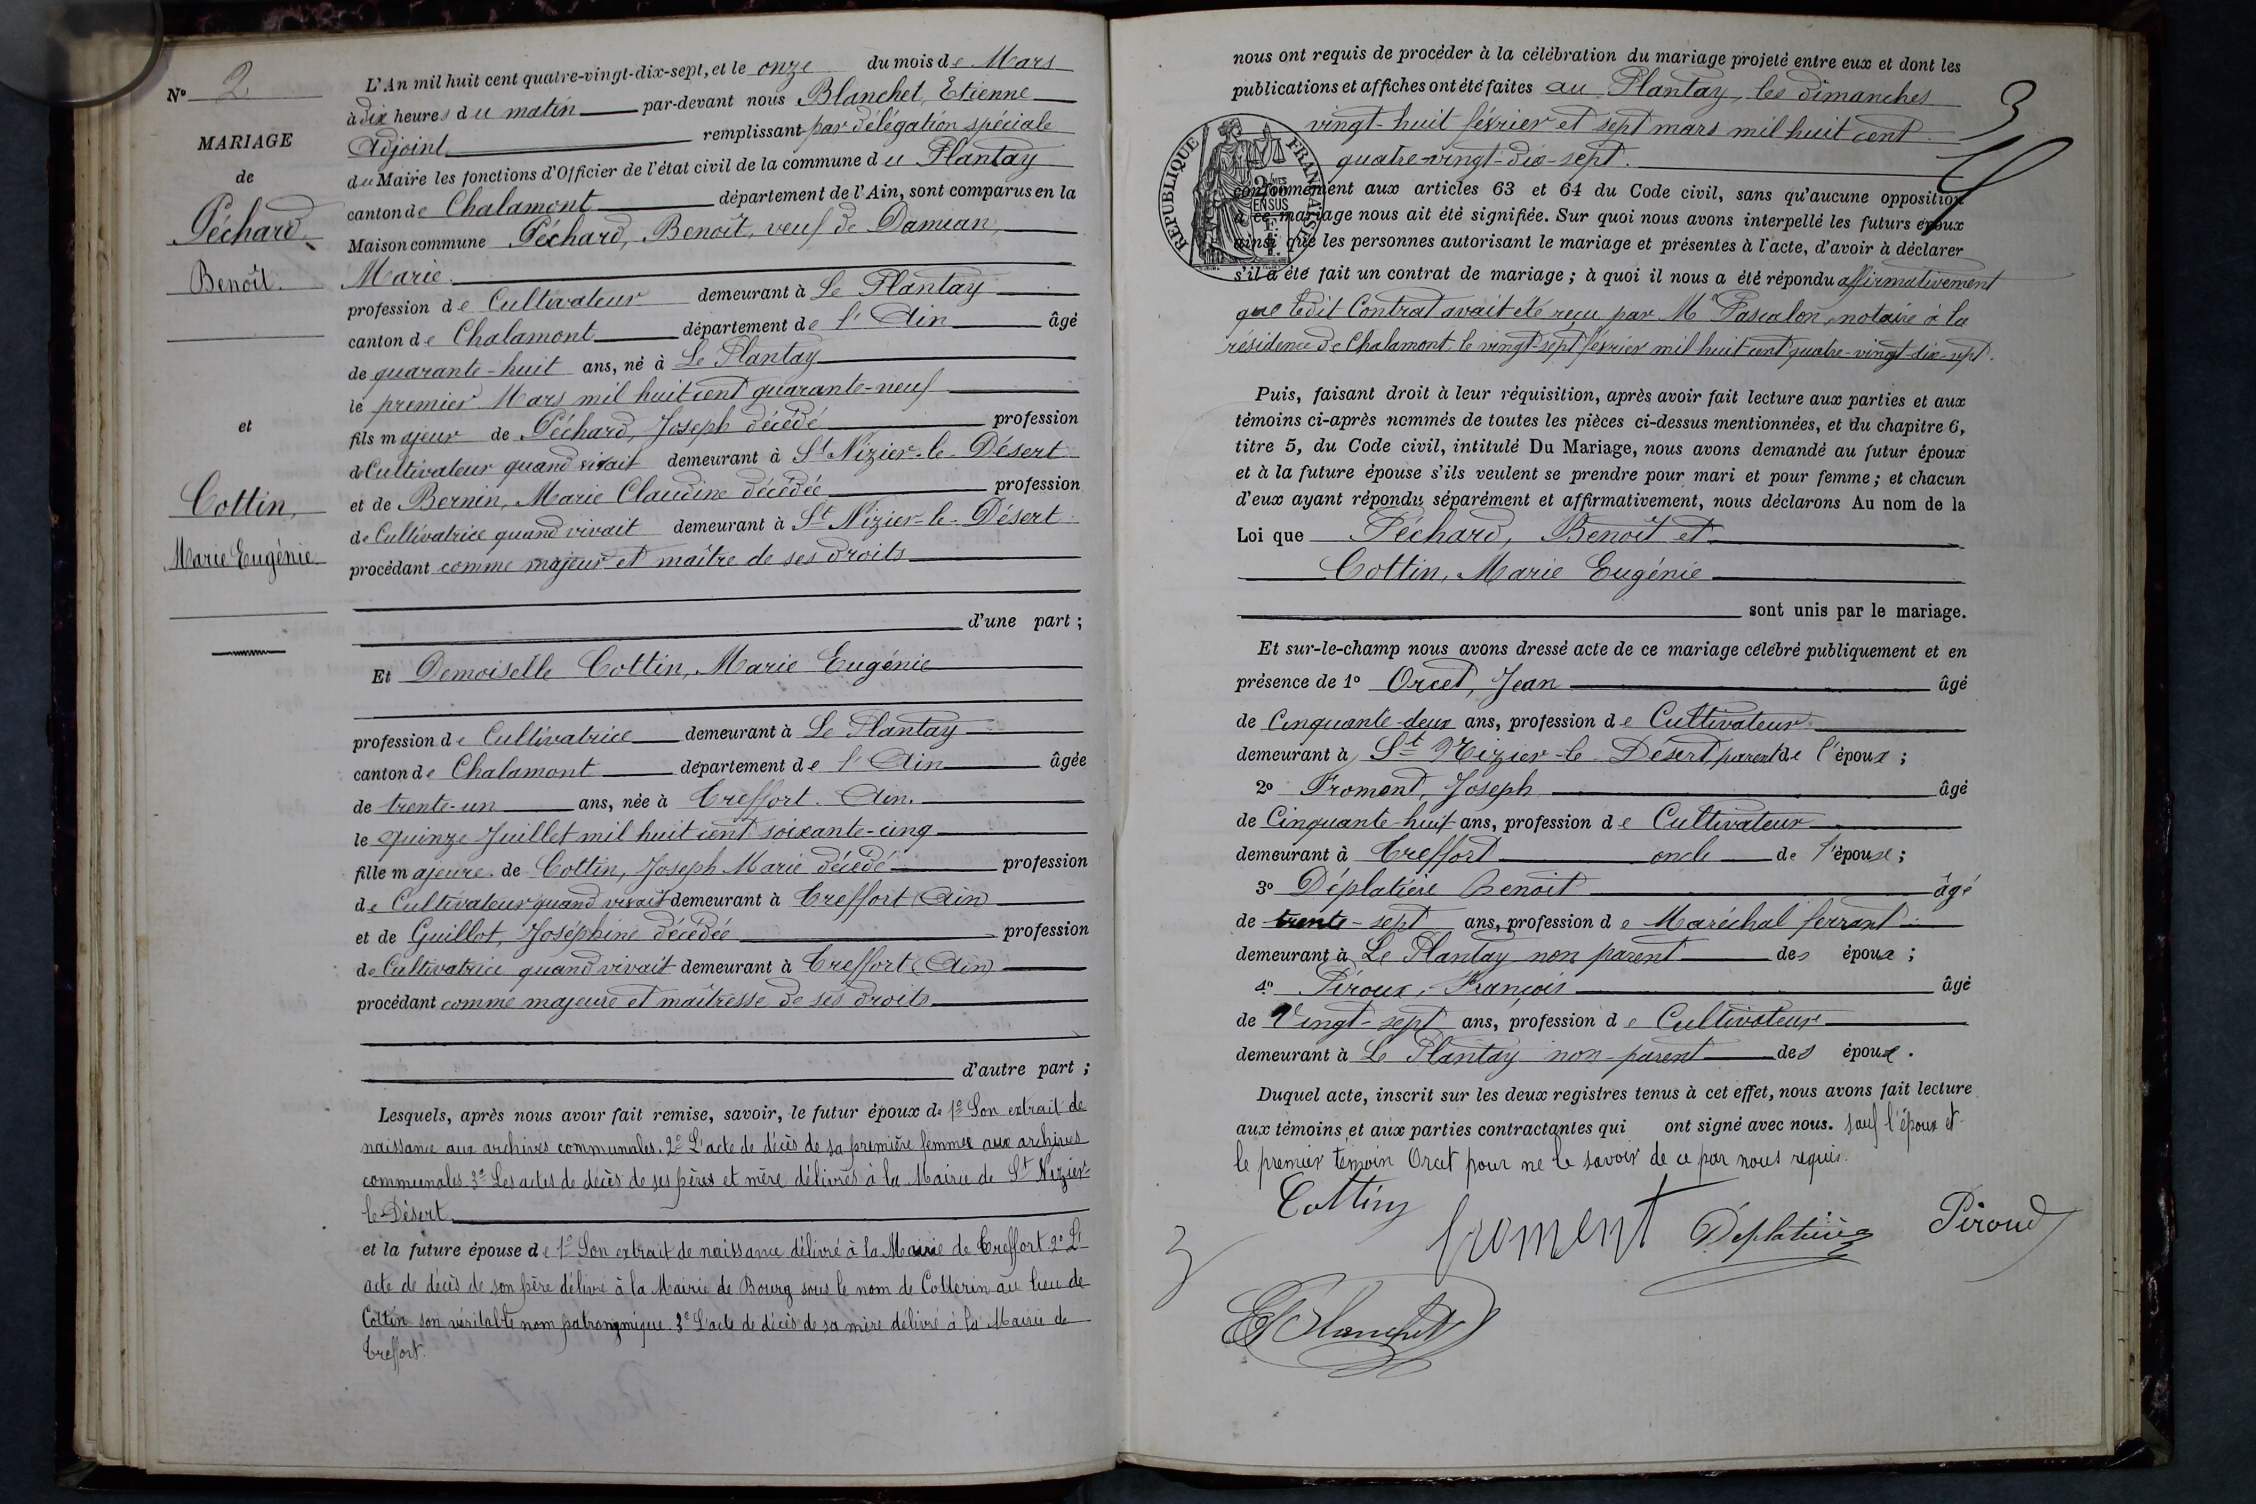 N° 2
MARIAGE
de
Péchard
Benoît.
et
Cottin,
Marie Eugénie
L'An mil huit cent quatre-vingt-dix-sept, et le onze du mois de Mars
à dix heures du matin par-devant nous Blanchet, Etienne
Adjoint remplissant par délégation spéciale
du Maire les fonctions d'Officier de l'état civil de la commune du Plantay
canton de Chalamont département de l'Ain, sont comparus en la
Maison commune Péchard, Benoît, veuf de Damian,
Marie.
profession de Cultivateur demeurant à Le Plantay
canton de Chalamont département de l'Ain âgé
de quarante-huit ans, né à Le Plantay
le premier Mars mil huit cent quarante-neuf
fils majeur de Péchard, Joseph décédé profession
de Cultivateur quand vivait demeurant à St Nizier-le-Désert
et de Bernin, Marie Claudine décédée profession
de Cultivatrice quand vivait demeurant à St Nizier-le-Désert
procédant comme majeur et maître de ses droits
d'une part ;
Et Demoiselle Cottin, Marie Eugénie
profession de Cultivatrice demeurant à Le Plantay
canton de Chalamont département de l'Ain âgée
de trente-un ans, née à Treffort. Ain.
le quinze Juillet mil huit cent soixante-cinq
fille majeure de Cottin, Joseph Marie décédé profession
de Cultivateur quand vivait demeurant à Treffort (Ain)
et de Guillot, Joséphine décédée profession
de Cultivatrice quand vivait demeurant à Treffort (Ain)
procédant comme majeure et maîtresse de ses droits
d'autre part ;
Lesquels, après nous avoir fait remise, savoir, le futur époux de 1° Son extrait de
naissance aux archives communales. 2° L'acte de décès de sa première femme aux archives
communales 3° Les actes de décès de ses pères et mère délivrés à la Mairie de St Nizier-
le-Désert
et la future épouse de 1° Son extrait de naissance délivré à la Mairie de Treffort 2° L'
acte de décès de son père délivré à la Mairie de Bourg sous le nom de Cotterin au lieu de
Cottin son véritable nom patronymique. 3° L'acte de décès de sa mère délivré à la Mairie de
Treffort.
nous ont requis de procéder à la célébration du mariage projeté entre eux et dont les
publications et affiches ont été faites au Plantay, les dimanches
vingt-huit février et sept mars mil huit cent
quatre-vingt-dix-sept.
3
RÉPUBLIQUE FRANÇAISE
conformément aux articles 63 et 64 du Code civil, sans qu'aucune opposition
à ce mariage nous ait été signifiée. Sur quoi nous avons interpellé les futurs époux
ainsi que les personnes autorisant le mariage et présentes à l'acte, d'avoir à déclarer
s'il a été fait un contrat de mariage ; à quoi il nous a été répondu affirmativement
que ledit Contrat avait été reçu par Me Pascalon, notaire à la
résidence de Chalamont le vingt-sept février mil huit cent quatre-vingt-dix-sept.
Puis, faisant droit à leur réquisition, après avoir fait lecture aux parties et aux
témoins ci-après nommés de toutes les pièces ci-dessus mentionnées, et du chapitre 6,
titre 5, du Code civil, intitulé Du Mariage, nous avons demandé au futur époux
et à la future épouse s'ils veulent se prendre pour mari et pour femme ; et chacun
d'eux ayant répondu séparément et affirmativement, nous déclarons Au nom de la
Loi que Péchard, Benoît et
Cottin, Marie Eugénie
sont unis par le mariage.
Et sur-le-champ nous avons dressé acte de ce mariage célébré publiquement et en
présence de 1° Orcet, Jean âgé
de Cinquante-deux ans, profession de Cultivateur
demeurant à St Nizier-le-Désert, parent de l'époux ;
2° Froment, Joseph âgé
de Cinquante-huit ans, profession de Cultivateur
demeurant à Treffort oncle de l'épouse ;
3° Déplatière Benoît âgé
de trente-sept ans, profession de Maréchal ferrant
demeurant à Le Plantay non parent des époux ;
4° Piroux, François âgé
de Vingt-sept ans, profession de Cultivateur
demeurant à Le Plantay non-parent des époux.
Duquel acte, inscrit sur les deux registres tenus à cet effet, nous avons fait lecture
aux témoins et aux parties contractantes qui ont signé avec nous. sauf l'époux et
le premier témoin Orcet pour ne le savoir de ce par nous requis.
Cottin
froment
Déplatière
Piroud
E Blanchet